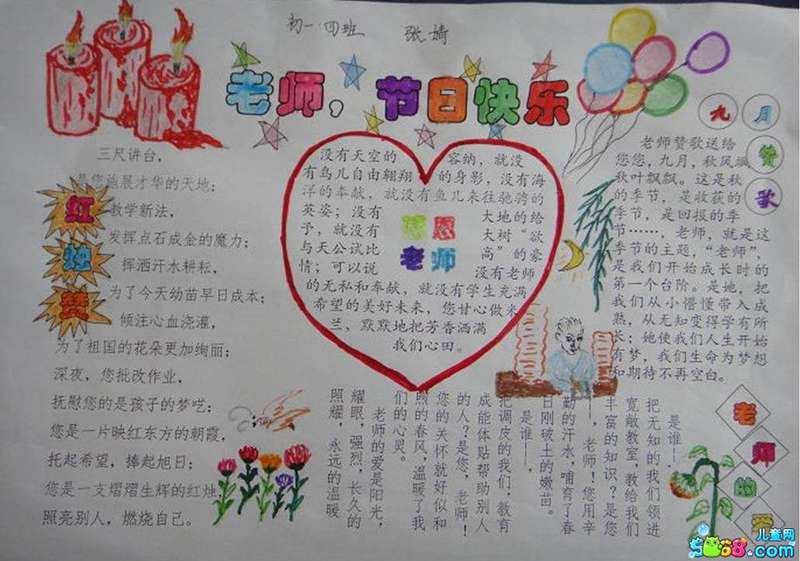 初一·四班 张婧
老师，节日快乐
三尺讲台，
是您施展才华的天地；
教学新法，
发挥点石成金的魔力；
挥洒汗水耕耘，
为了今天幼苗早日成本；
倾注心血浇灌，
为了祖国的花朵更加绚丽；
深夜，您批改作业，
抚慰您的是孩子的梦呓；
您是一片映红东方的朝霞，
托起希望，捧起旭日；
您是一支熠熠生辉的红烛，
照亮别人，燃烧自己。
红
烛
赞
没有天空的 容纳，就没
有鸟儿自由翱翔 的身影，没有海
洋的奉献，就没有鱼儿来往驰骋的
英姿；没有 大地的给
予，就没有 大树“欲
与天公试比 高”的豪
情；可以说 没有老师
的无私和奉献，就没有学生充满
希望的美好未来，您甘心做米
兰，默默地把芳香洒满
我们心田。
感恩
老师
九
月
赞
歌
老师赞歌送给
您您，九月，秋风飒
秋叶飘飘。这是秋
的季节，是收获的
季节，是回报的季
节……，老师，就是这
季节的主题，“老师”，
是我们开始成长时的
第一个台阶。是她，把
我们从小懵懂带入成
熟，从无知变得学有所
长；她使我们人生开始
有梦，我们生命为梦想
和期待不再空白。
是谁—，
把无知的我们领进
宽敞教室，教给我们
丰富的知识？是您
—，老师！您用辛
勤的汗水，哺育了春
日刚破土的嫩苗。
是谁—，
把调皮的我们，教育
成能体贴帮助别人
的人？是您，老师！
您的关怀就好似和
煦的春风，温暖了我
们的心灵。
老师的爱是阳光，
耀眼，强烈，长久的
照耀，永远的温暖
老
师
的
爱
儿童网
5068.com